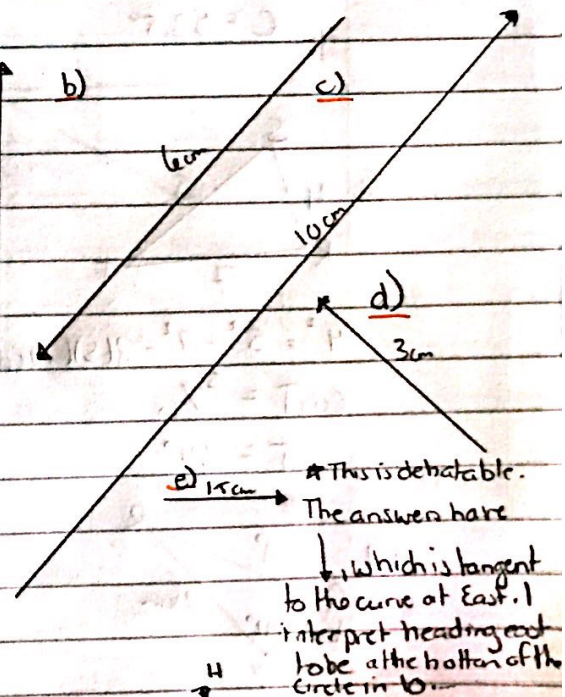 b)
c)
6cm
10cm
d)
3cm
e) 1.5cm
*This is debatable.
The answers have
↓, which is tangent
to the curve at East. I
interpret heading east
to be at the bottom of the
circle in b.
H